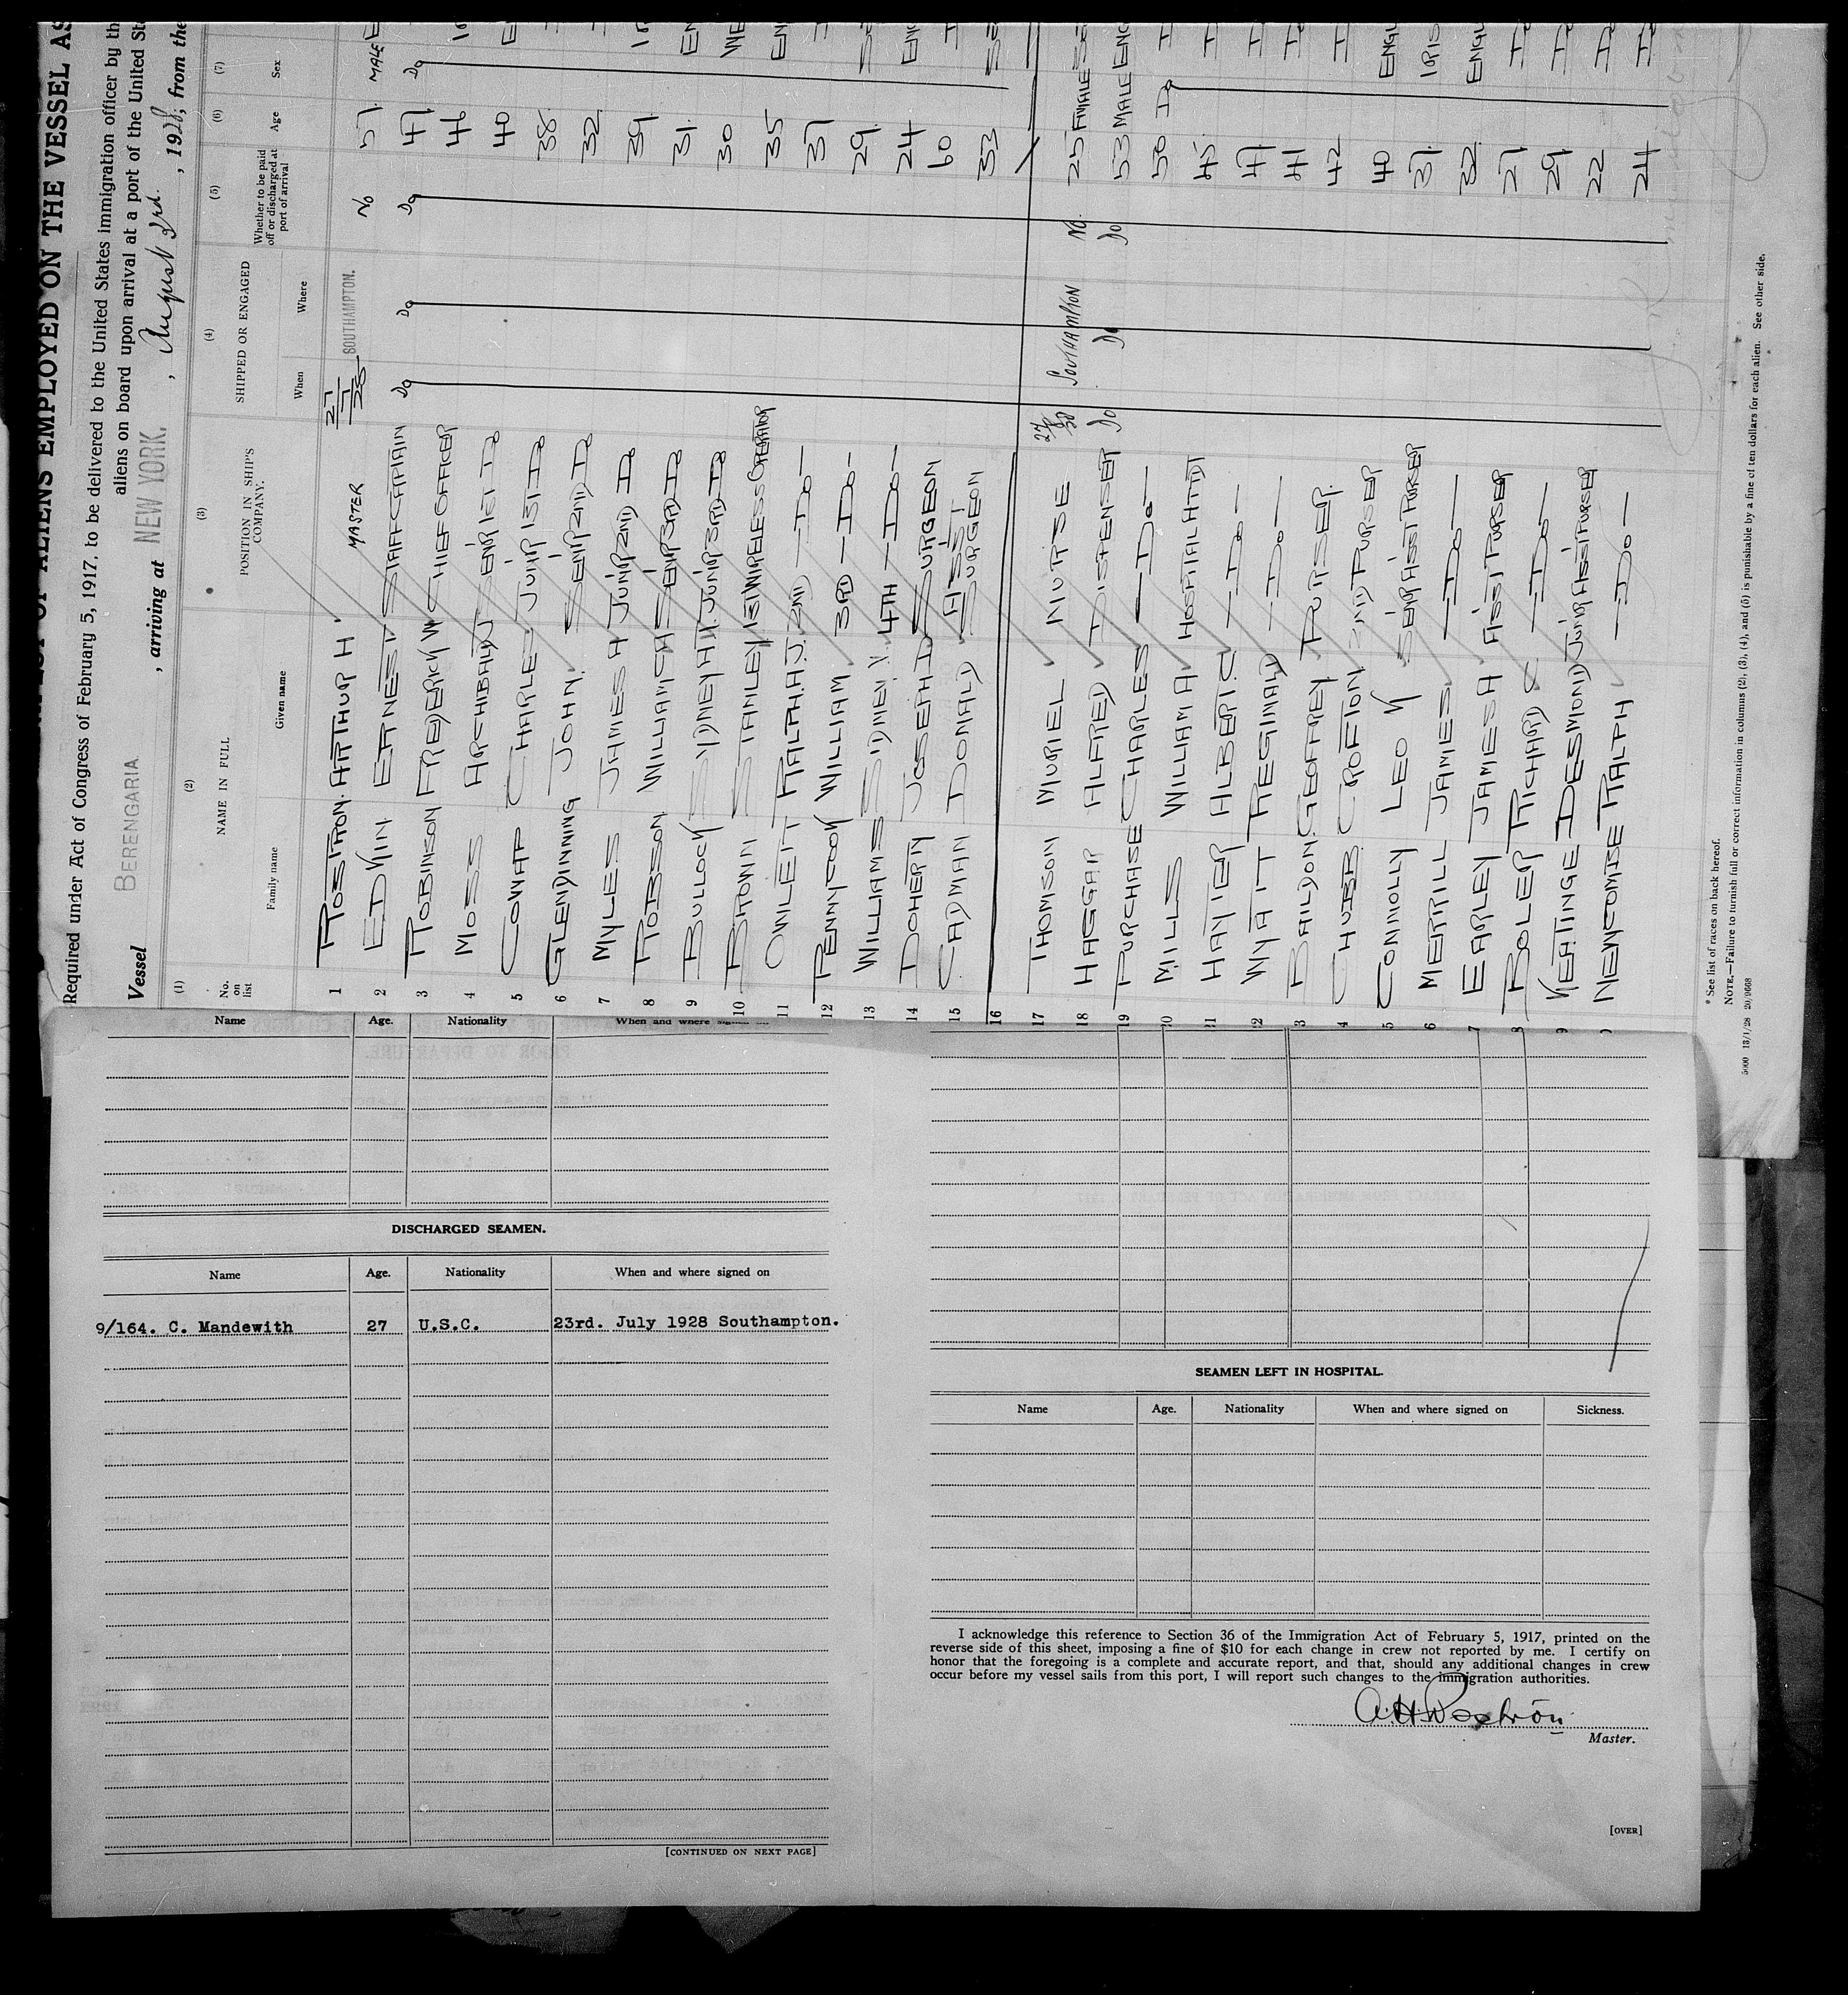 LIST OF ALIENS EMPLOYED ON THE VESSEL AS
Required under Act of Congress of February 5, 1917, to be delivered to the United States immigration officer by th
aliens on board upon arrival at a port of the United Sta
Vessel BERENGARIA , arriving at NEW YORK. , August 3rd. , 1928, from the
(1) (2) (3) (4) (5) (6) (7)
No. on list
NAME IN FULL
Family name Given name
POSITION IN SHIP'S COMPANY.
SHIPPED OR ENGAGED
When Where
Whether to be paid off or discharged at port of arrival
Age
Sex
1 ROSTRON. ARTHUR H MASTER 27/7/28 SOUTHAMPTON. No 57. MALE E
2 EDKIN ERNEST STAFF CAPTAIN Do Do Do 47 Do
3 ROBINSON FREDERICK W CHIEF OFFICER 46
4 MOSS ARCHIBALD SENR 1ST Do 40
5 COWAP CHARLES JUNR 1ST Do 38
6 GLENDINNING JOHN. SENR 2ND Do 32
7 MYLES JAMES A JUNR 2ND Do 39
8 ROBSON WILLIAM C A SENR 3RD Do 31.
9 BULLOCK SYDNEY A H. JUNR 3RD Do 30
10 BROWN STANLEY 1ST WIRELESS OPERATOR 35
11 RALPH. A. J. 2ND — Do — 37
12 PENNYCOOK WILLIAM 3RD — Do — 29.
13 WILLIAMS SIDNEY V. 4TH — Do — 24
14 DOHERTY JOSEPH D SURGEON 60
15 CADMAN DONALD ASSIST SURGEON 33
16
17 THOMSON MURIEL NURSE SOUTHAMPTON No. 25 FEMALE
18 HAGGAR ALFRED DISPENSER Do Do Do 53 MALE ENG
19 PURCHASE CHARLES — Do — 50 Do
20 MILLS WILLIAM A HOSPITAL ATTDT 45.
21 HAYTER ALBERT C — Do — 47
22 WYATT REGINALD — Do — 41
3 BAILDON. GEOFFREY PURSER. 42
4 CROFTON 2ND PURSER 40
5 CONNOLLY LEO V SENR ASST PURSER 37.
6 MERRILL JAMES — Do — 32
7 EARLEY JAMES A ASST PURSER 27
8 BOLER RICHARD C — Do — 29
9 KEATINGE DESMOND JUNR ASST PURSER 22
NEWCOMBE RALPH — Do — 24
* See list of races on back hereof.
NOTE.—Failure to turnish full or correct information in columns (2), (3), (4), and (5) is punishable by a fine of ten dollars for each alien. See other side.
5000 13/1/28 20/9668
Name Age. Nationality When and where signed
DISCHARGED SEAMEN.
Name Age. Nationality When and where signed on
9/164. C. Mandewith 27 U.S.C. 23rd. July 1928 Southampton.
[CONTINUED ON NEXT PAGE]
SEAMEN LEFT IN HOSPITAL.
Name Age. Nationality When and where signed on Sickness.
I acknowledge this reference to Section 36 of the Immigration Act of February 5, 1917, printed on the
reverse side of this sheet, imposing a fine of $10 for each change in crew not reported by me. I certify on
honor that the foregoing is a complete and accurate report, and that, should any additional changes in crew
occur before my vessel sails from this port, I will report such changes to the immigration authorities.
A. H. Rostron
Master.
[OVER]